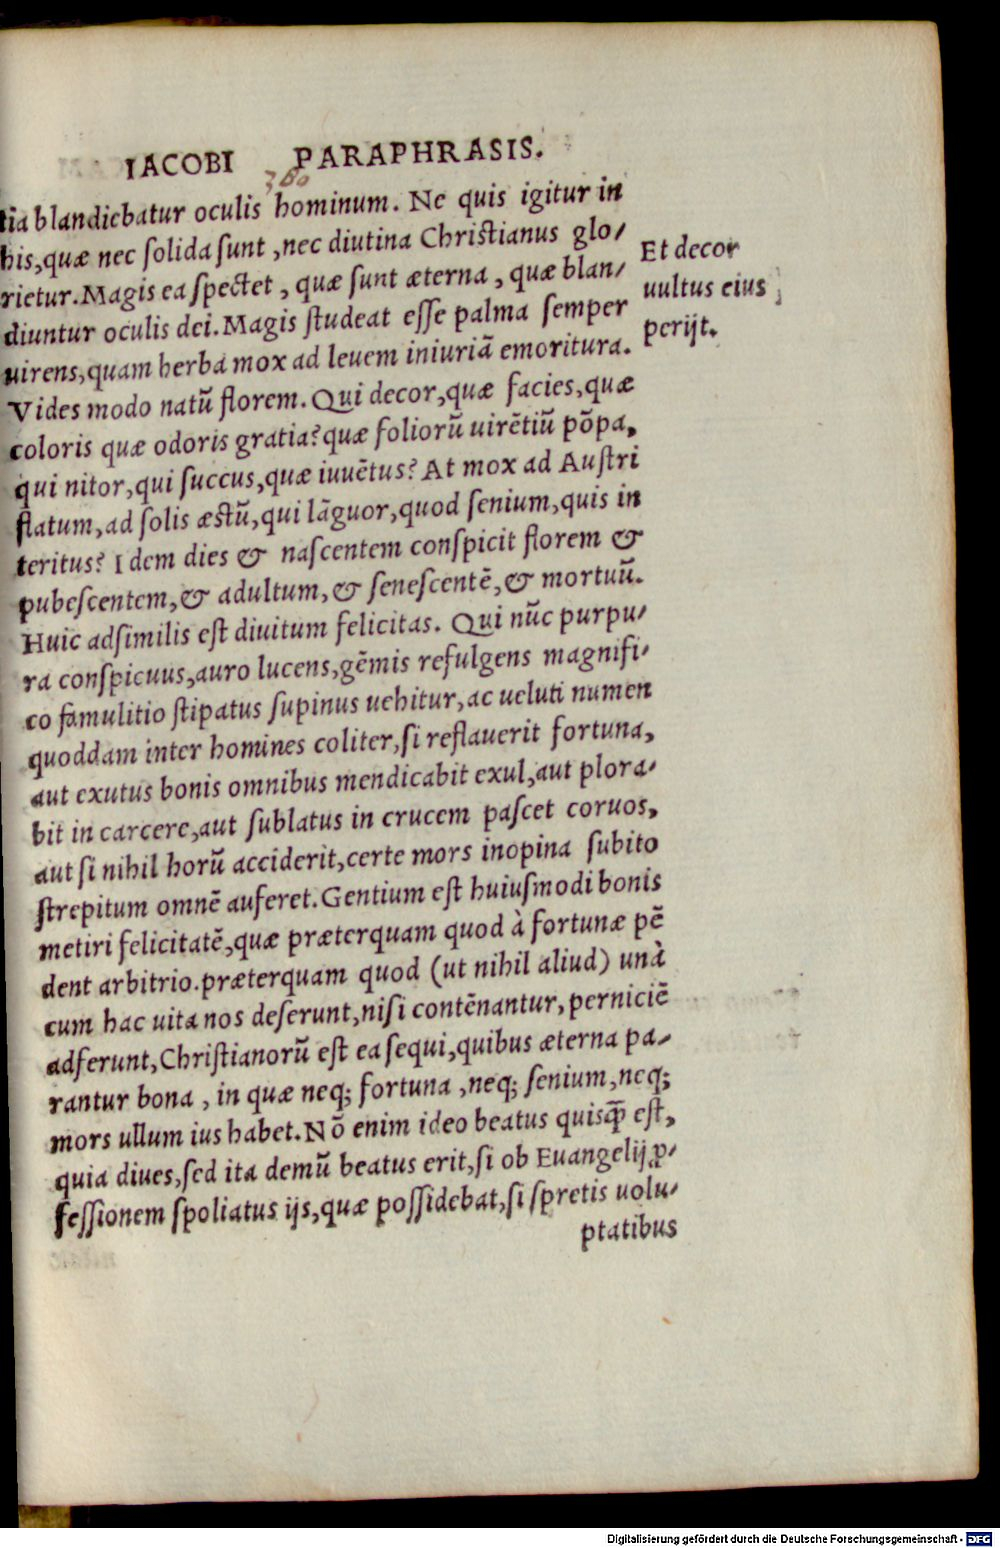 IACOBI PARAPHRASIS.
380
tia blandiebatur oculis hominum. Ne quis igitur in
his,quæ nec ſolida ſunt ,nec diutina Chriſtianus glo/
rietur.Magis ea ſpectet , quæ ſunt æterna , quæ blan/
diuntur oculis dei.Magis ſtudeat eſſe palma ſemper
uirens,quam herba mox ad leuem iniuriā emoritura.
Vides modo natū florem. Qui decor,quæ facies,quæ
coloris quæ odoris gratia?quæ foliorū uirētiū pōpa,
qui nitor,qui ſuccus,quæ iuuētus? At mox ad Auſtri
flatum,ad ſolis æſtū,qui lāguor,quod ſenium,quis in
teritus? Idem dies & naſcentem conſpicit florem &
pubeſcentem,& adultum,& ſeneſcentē,& mortuū.
Huic adſimilis eſt diuitum felicitas. Qui nūc purpu/
ra conſpicuus,auro lucens,gēmis refulgens magnifi/
co famulitio ſtipatus ſupinus uehitur,ac ueluti numen
quoddam inter homines coliter,ſi reflauerit fortuna,
aut exutus bonis omnibus mendicabit exul,aut plora/
bit in carcere,aut ſublatus in crucem paſcet coruos,
aut ſi nihil horū acciderit,certe mors inopina ſubito
ſtrepitum omnē auferet.Gentium eſt huiuſmodi bonis
metiri felicitatē,quæ præterquam quod à fortunæ pē
dent arbitrio.præterquam quod (ut nihil aliud) unà
cum hac uita nos deſerunt,niſi contēnantur,perniciē
adferunt,Chriſtianorū eſt ea ſequi,quibus æterna pa/
rantur bona , in quæ neq; fortuna ,neq; ſenium,neq;
mors ullum ius habet.Nō enim ideo beatus quisꝗ̄ eſt,
quia diues,ſed ita demū beatus erit,ſi ob Euangelij ꝓ/
feſſionem ſpoliatus ijs,quæ poſſidebat,ſi ſpretis uolu/
ptatibus
Et decor
uultus eius
perijt.
Digitalisierung gefördert durch die Deutsche Forschungsgemeinschaft - DFG